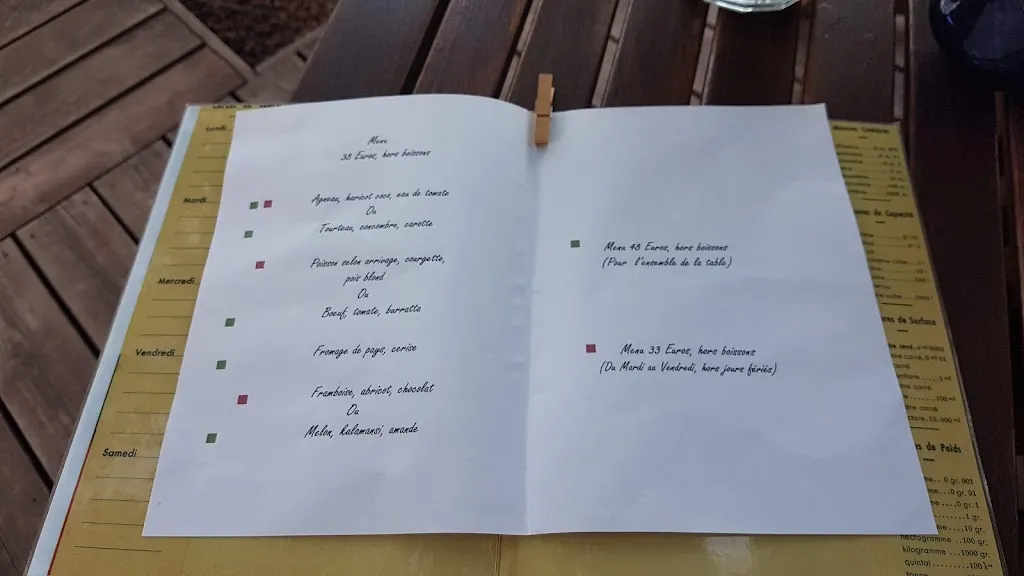 Menu
38 Euros, hors boissons
Agneau, haricot coco, eau de tomate
Ou
Tourteau, concombre, carotte
Poisson selon arrivage, courgette,
pois blond
Ou
Boeuf, tomate, burratta
Fromage de pays, cerise
Framboise, abricot, chocolat
Ou
Melon, kalamansi, amande
Menu 48 Euros, hors boissons
(Pour l'ensemble de la table)
Menu 33 Euros, hors boissons
(Du Mardi au Vendredi, hors jours fériés)
Lundi
Mardi
Mercredi
Vendredi
Samedi
de Capacité
de Surface
de Poids
0 gr. 001
0 gr. 01
0 gr. 1
1 gr.
10 gr.
hectogramme ..100 gr.
kilogramme ...1000 gr.
quintal